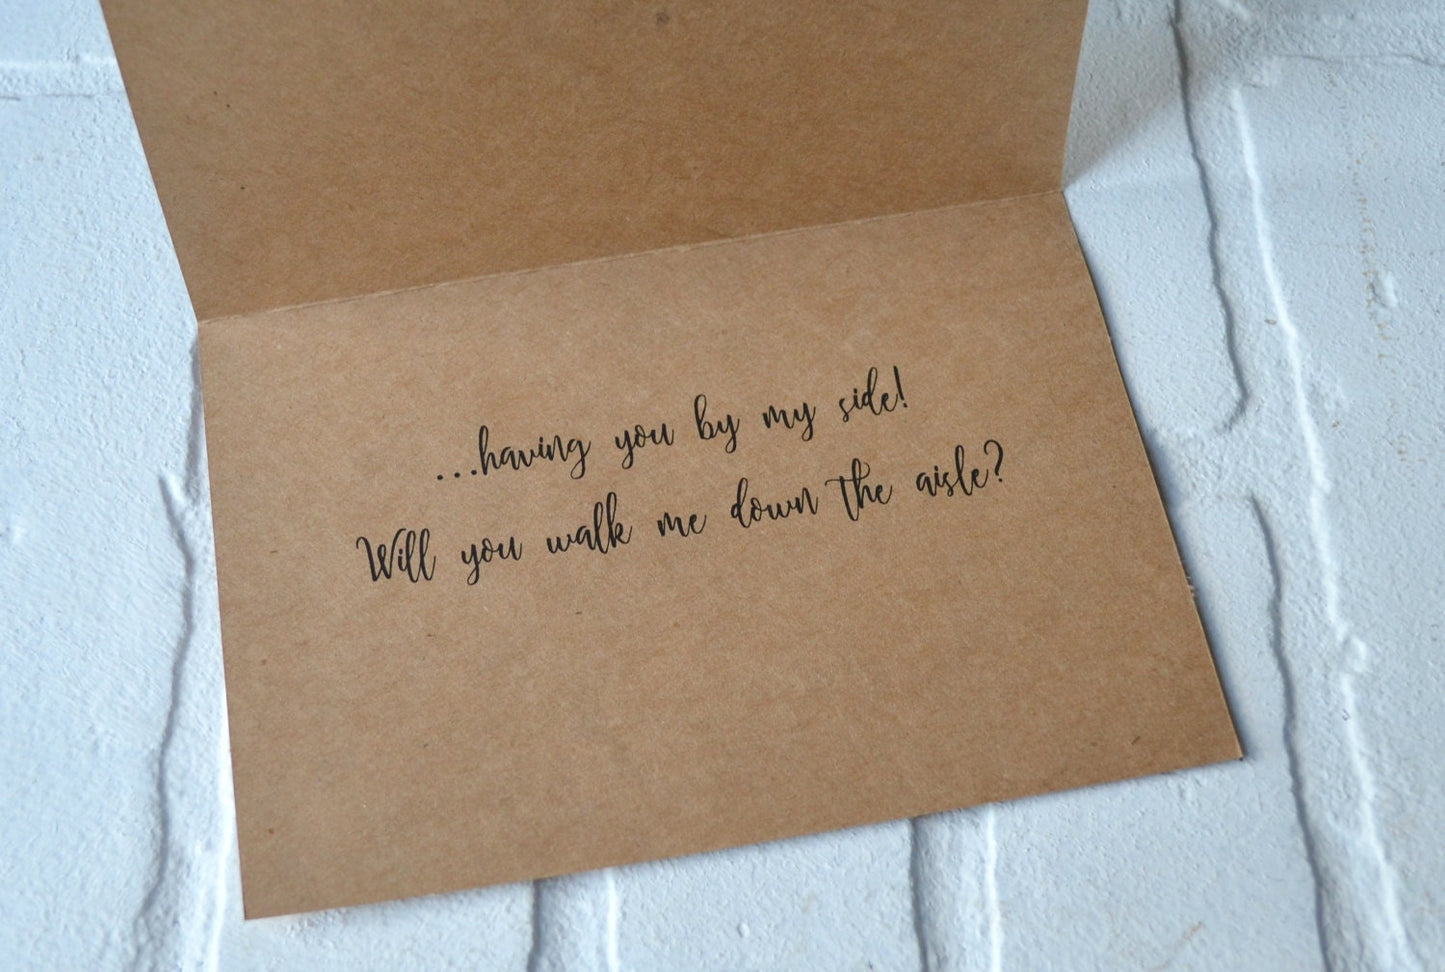 ...having you by my side!
Will you walk me down the aisle?